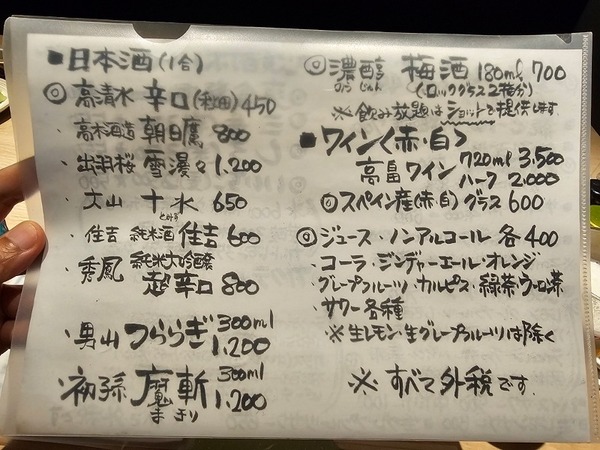 ■日本酒(1合)
◎高清水 辛口(秋田)450
・高木酒造 朝日鷹 800
・出羽桜 雪漫々 1,200
・大山 十水 650
とみず
・住吉 純米酒 住吉 600
・秀鳳 純米大吟醸 超辛口 800
・男山 つららぎ 300ml 1,200
・初孫 魔斬 300ml 1,200
まきり
◎濃醇 梅酒 180ml 700
のうじゅん (ロックグラス2杯分)
※飲み放題はショットで提供します
■ワイン<赤・白>
高畠ワイン 720ml 3,500
ハーフ 2,000
◎スペイン産(赤・白)グラス 600
◎ジュース・ノンアルコール 各400
・コーラ・ジンヂャーエール・オレンジ
グレープフルーツ・カルピス・緑茶・ウーロン茶
・サワー各種
※生レモン・生グレープフルーツは除く
※すべて外税です